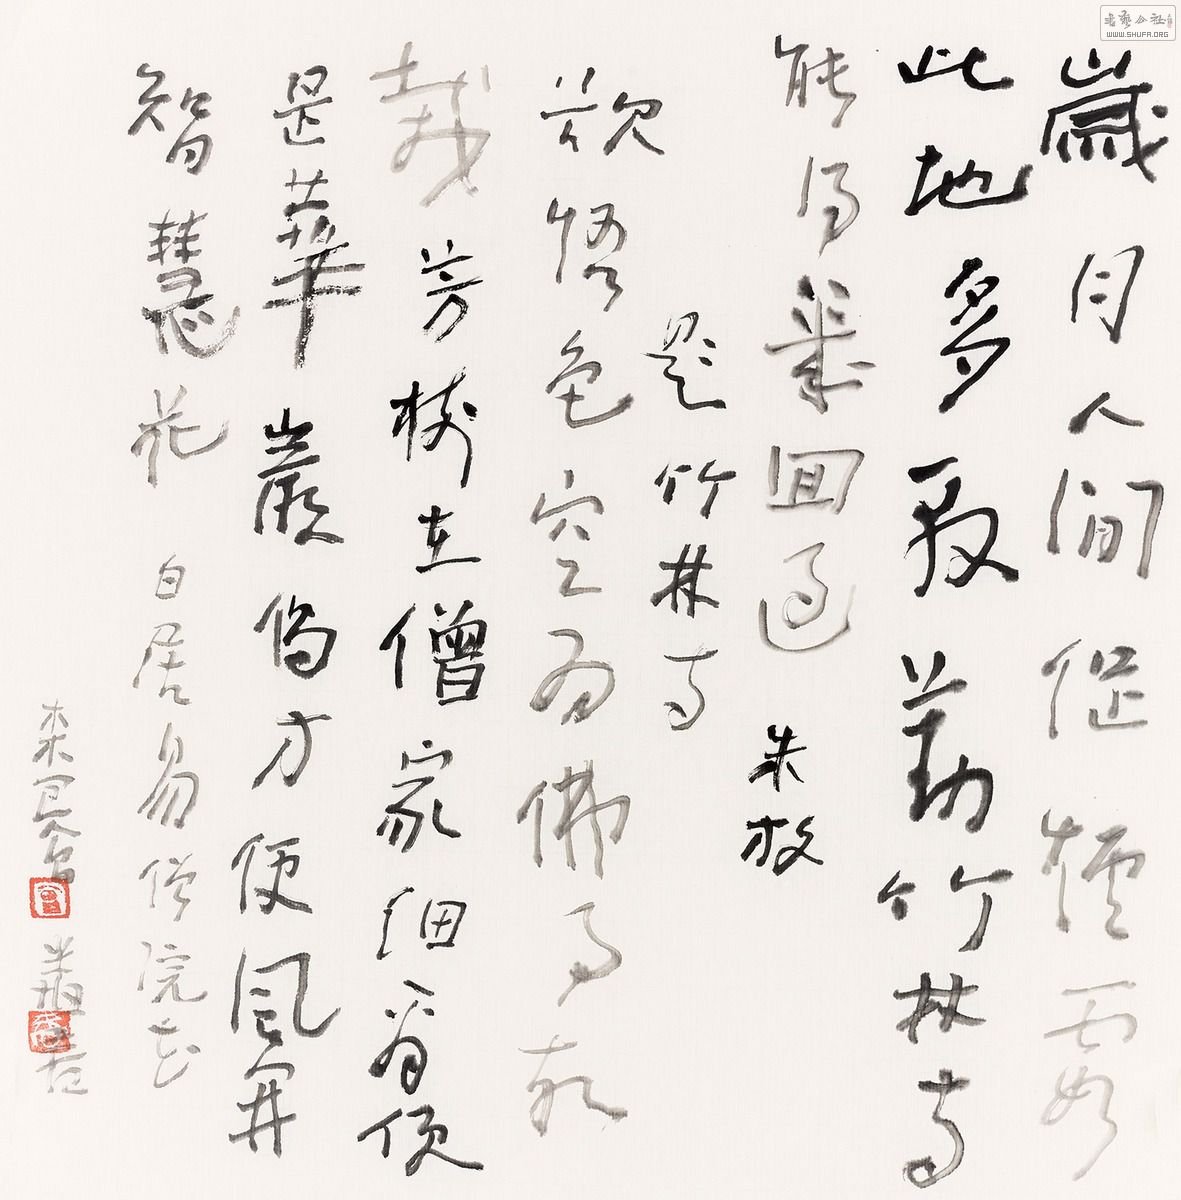 書藝公社
WWW.SHUFA.ORG
歲月人間促煙霞
此地多殷勤竹林寺
能得幾回過 朱放
題竹林寺
欲悟色空為佛事故
栽芳樹在僧家細看便
是華嚴偈方便風開
智慧花 白居易僧院花